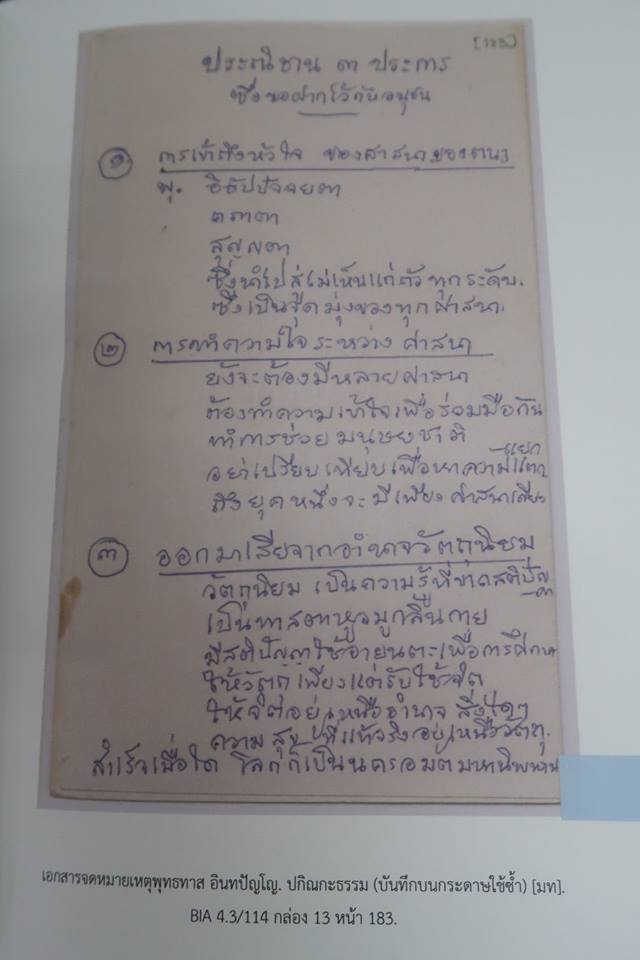 [183]
ประณิธาน ๓ ประการ
ซึ่งขอฝากไว้กับอนุชน
๑ การเข้าถึงหัวใจ ของศาสนาของตนๆ
พุ. อิธัปปัจจยตา
ตถาตา
สุญญตา
ซึ่งนำไปสู่ไม่เห็นแก่ตัวทุกระดับ.
ซึ่งเป็นจุดมุ่งของทุกศาสนา.
๒ การทำความใจระหว่างศาสนา
ยังจะต้องมีหลายศาสนา
ต้องทำความเข้าใจเพื่อร่วมมือกัน
ทำการช่วยมนุษยชาติ
อย่าเปรียบเทียบเพื่อหาความแตกแยก
ถึงยุคหนึ่งจะมีเพียงศาสนาเดียว
๓ ออกมาเสียจากอำนาจวัตถุนิยม
วัตถุนิยม เป็นความรู้ที่ขาดสติปัญญา
เป็นทาสตาหูจมูกลิ้นกาย
มีสติปัญญาใช้อายนตะเพื่อการศึกษา
ให้วัตถุเพียงแต่รับใช้จิต
ให้จิตอยู่เหนืออำนาจ สิ่งใดๆ
ความสุขที่แท้จริงอยู่เหนือวัตถุ.
สำเร็จเมื่อใด โลกก็เป็นนครอมตมหานิพพาน
เอกสารจดหมายเหตุพุทธทาส อินทปัญโญ. ปกิณกะธรรม (บันทึกบนกระดาษใช้ซ้ำ) [มท].
BIA 4.3/114 กล่อง 13 หน้า 183.